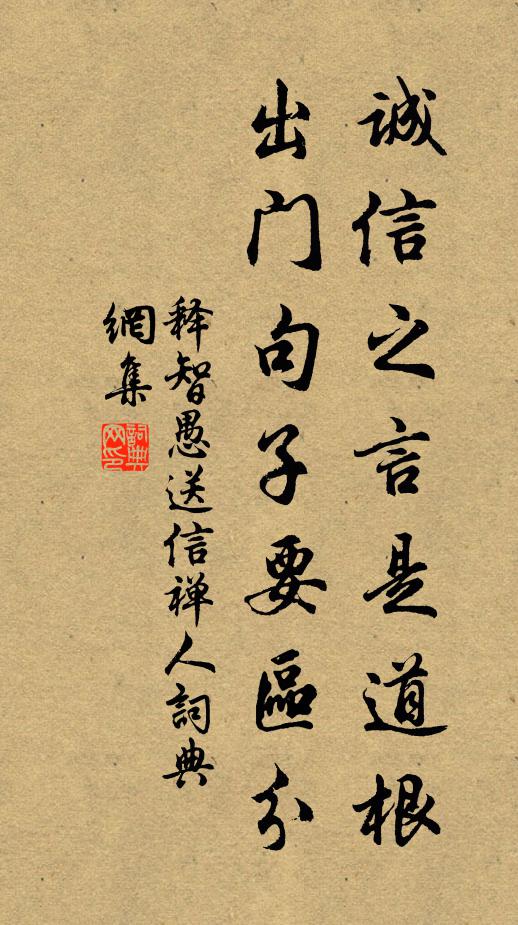 誠信之言是道根
出门句子要區分
释智愚送信禅人詞典
網集
詞典
网印